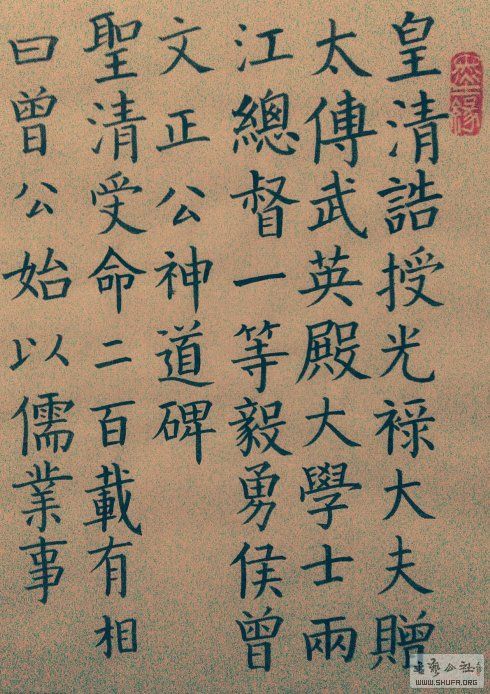 皇清誥授光祿大夫贈
太傅武英殿大學士兩
江總督一等毅勇侯曾
文正公神道碑
聖清受命二百載有相
曰曾公始以儒業事
WWW.SHUFA.ORG